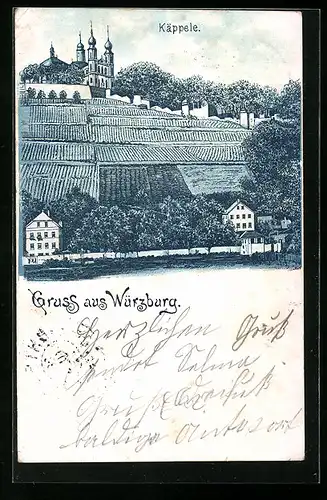 Käppele.
Gruss aus Würzburg.
Herzlichen Gruß
sendet Selma
Gruß &
baldige Antwort